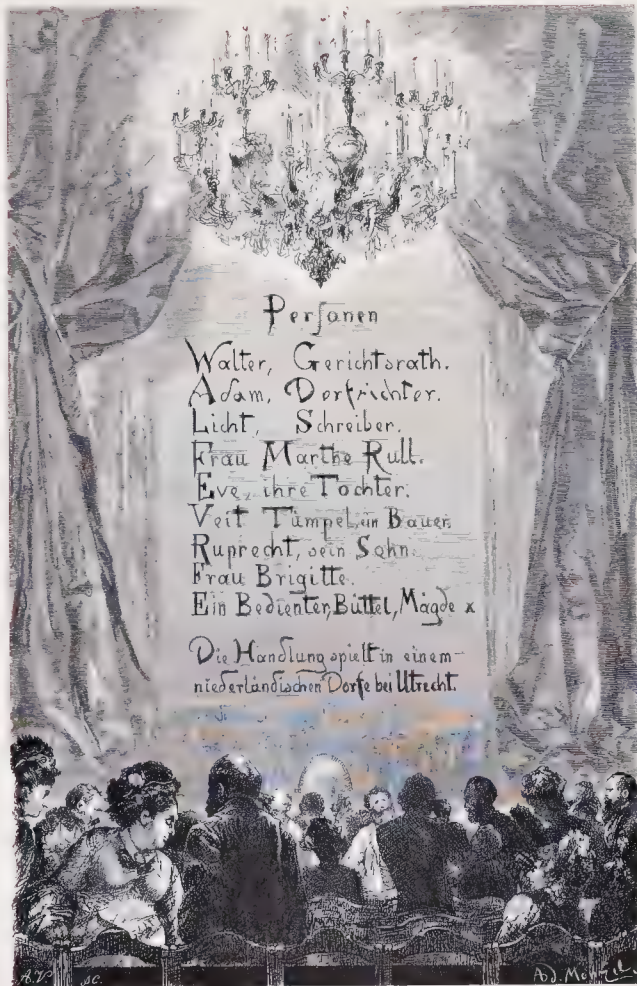 Personen
Walter, Gerichtsrath.
Adam, Dorfrichter.
Licht, Schreiber.
Frau Marthe Rull.
Eve, ihre Tochter.
Veit Tümpel, ein Bauer.
Ruprecht, sein Sohn.
Frau Brigitte.
Ein Bedienter, Büttel, Mägde x
Die Handlung spielt in einem
niederländischen Dorfe bei Utrecht.
A.V. sc. Ad. Menzel.